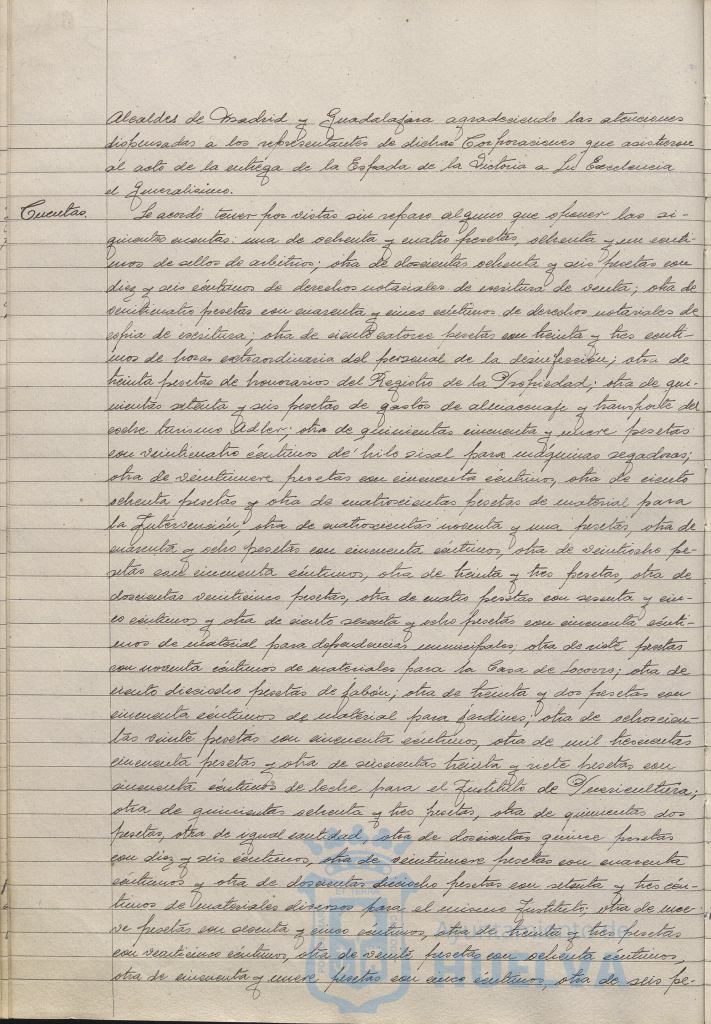 Alcaldes de Madrid y Guadalajara agradeciendo las atenciones
dispensadas a los representantes de dichas Corporaciones que asistieron
al acto de la entrega de la Espada de la Victoria a Su Excelencia
el Generalísimo.
Cuentas. Se acordó tener por vistas sin reparo alguno que oponer las si-
guientes cuentas: una de ochenta y cuatro pesetas, ochenta y un cénti-
mos de sellos de arbitrios; otra de doscientas ochenta y seis pesetas con
diez y seis céntimos de derechos notariales de escritura de venta; otra de
veinticuatro pesetas con cuarenta y cinco céntimos de derechos notariales de
copia de escritura; otra de ciento catorce pesetas con treinta y tres cénti-
mos de horas extraordinaria del personal de la desinfección; otra de
treinta pesetas de honorarios del Registro de la Propiedad; otra de qui-
nientas setenta y seis pesetas de gastos de almacenaje y transporte del
coche turismo Adler; otra de quinientas cincuenta y nueve pesetas
con veinticuatro céntimos de hilo sisal para máquinas segadoras;
otra de veintinueve pesetas con cincuenta céntimos, otra de ciento
ochenta pesetas y otra de cuatrocientas pesetas de material para
la Intervención; otra de cuatrocientas noventa y una pesetas, otra de
cuarenta y ocho pesetas con cincuenta céntimos, otra de veintiocho pe-
setas con cincuenta céntimos, otra de treinta y tres pesetas, otra de
doscientas veinticinco pesetas, otra de cuatro pesetas con sesenta y cin-
co céntimos y otra de ciento sesenta y ocho pesetas con cincuenta cénti-
mos de material para dependencias municipales; otra de siete pesetas
con noventa céntimos de materiales para la Casa de Socorro; otra de
ciento dieciocho pesetas de jabón; otra de treinta y dos pesetas con
cincuenta céntimos de material para jardines; otra de ochocien-
tas veinte pesetas con cincuenta céntimos, otra de mil trescientas
cincuenta pesetas y otra de seiscientas treinta y siete pesetas con
cincuenta céntimos de leche para el Instituto de Puericultura;
otra de quinientas ochenta y tres pesetas, otra de quinientas dos
pesetas, otra de igual cantidad, otra de doscientas quince pesetas
con diez y seis céntimos, otra de veintinueve pesetas con cuarenta
céntimos y otra de doscientas dieciocho pesetas con setenta y tres cén-
timos de materiales diversos para el mismo Instituto; otra de nue-
ve pesetas con sesenta y cinco céntimos, otra de treinta y tres pesetas
con veinticinco céntimos, otra de veinte pesetas con ochenta céntimos,
otra de cincuenta y nueve pesetas con cinco céntimos, otra de seis pe-
HUELVA